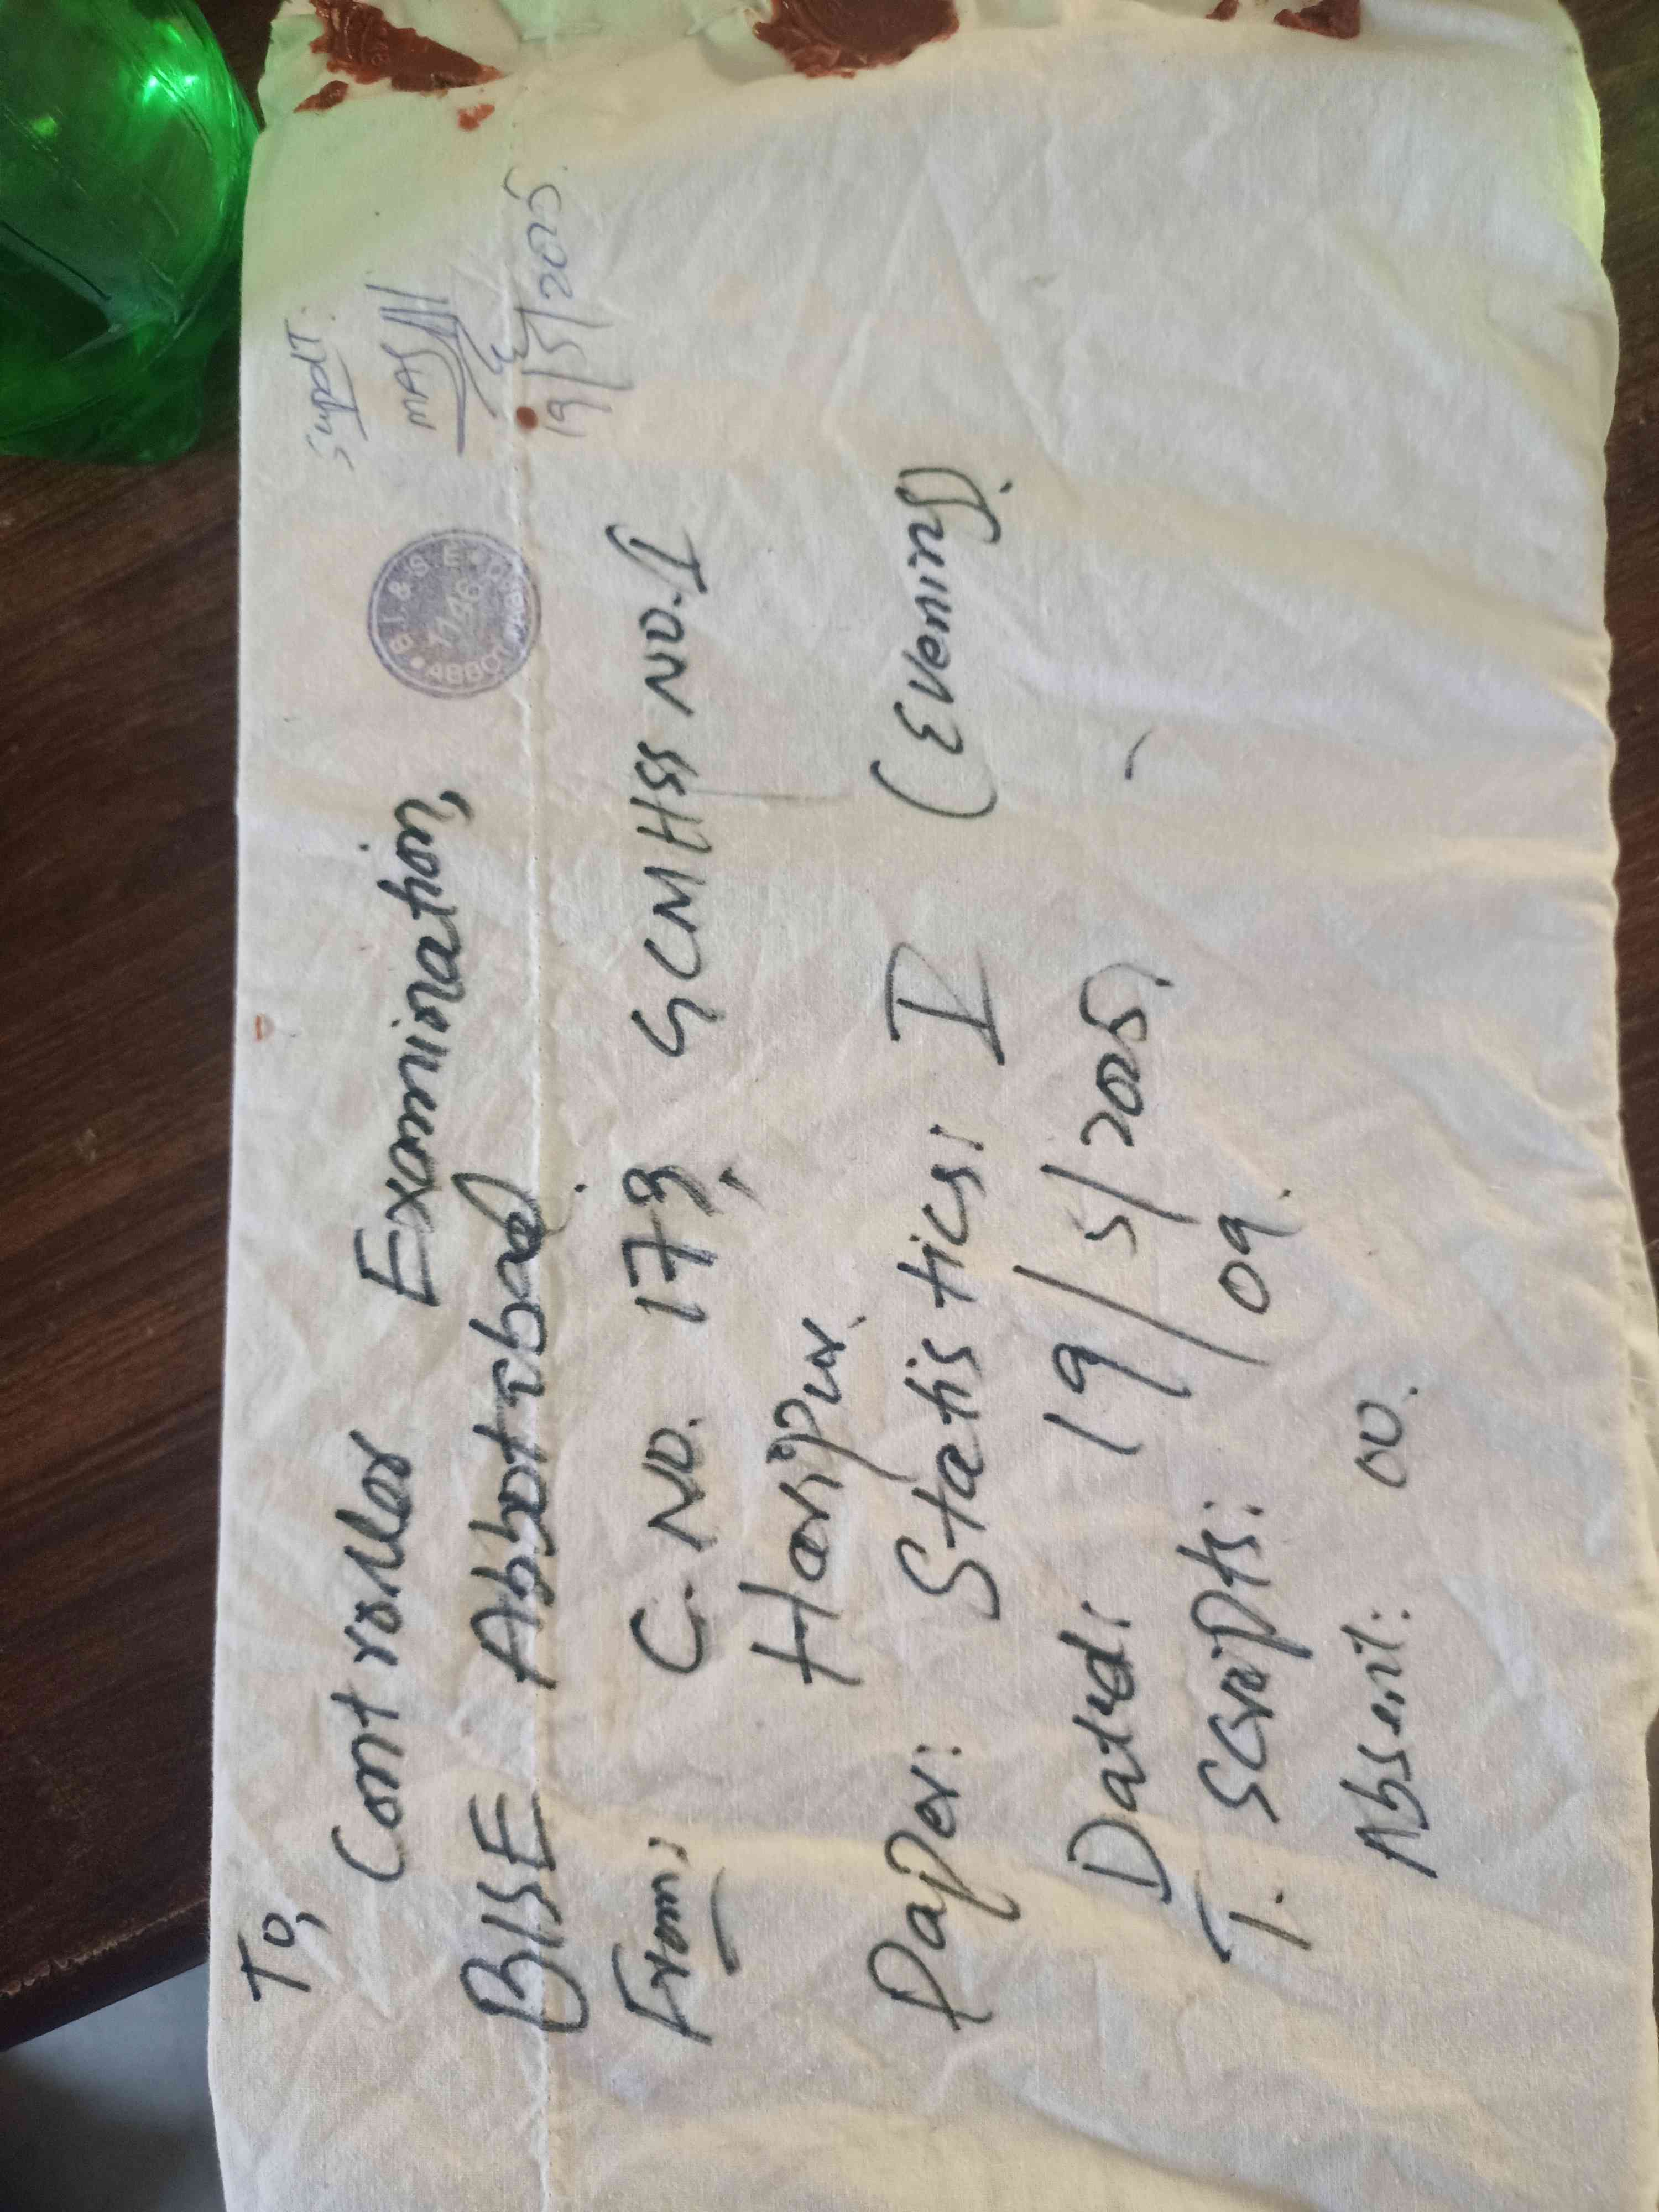 To,
Controller Examination,
BISE Abbottabad.
From: C. No. 179, GCMHSS No. I
Haripur.
Paper: Statistics: I (Evening).
Dated: 19/5/2025.
T. Scripts: 09.
Absent: 00.
Supdt:
19/5/2025.
B.I.&S.E